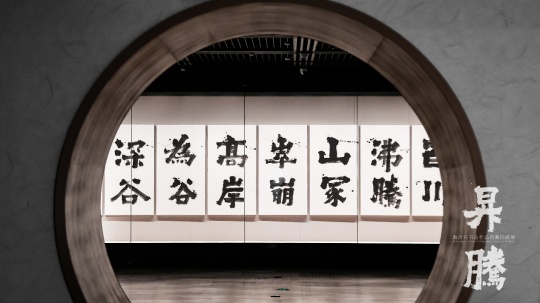 百川
沸騰
山冢
崒崩
高岸
為谷
深谷
昇騰